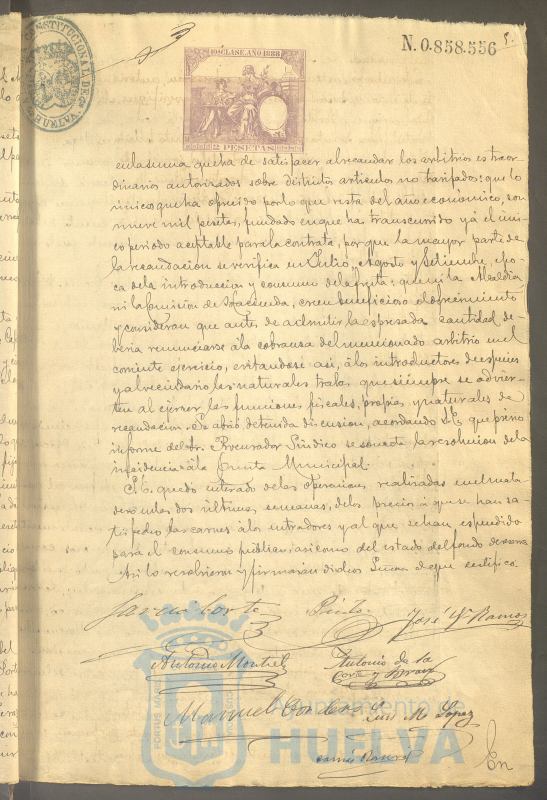 CONSTITUCIONAL DE
HUELVA
N.0.858.556
5.
10ª CLASE. AÑO 1888
2 PESETAS
en la suma que ha de satisfacer al recaudar los arbitrios extraor
dinarios autorizados sobre distintos articulos no tarifados: que lo
único que ha ofrecido por lo que resta del año económico, son
nueve mil pesetas, fundado en que ha transcurrido yá el úni
co periodo aceptable para la contrata, por que la mayor parte de
la recaudacion se verifica en Julio, Agosto y Setiembre, épo
ca de la introduccion y consumo de la fruta; que ni la Alcaldia
ni la Comision de Hacienda, creen beneficioso el ofrecimiento
y consideran que antes de admitir la expresada cantidad de
beria renunciarse á la cobranza del mencionado arbitrio en el
corriente ejercicio, evitandose asi, á los introductores de especies
y al vecindario las naturales trabas que siempre se advier
ten al ejercer las funciones fiscales, propias y naturales de
recaudacion. Se abrió detenida discusion, acordando S.E. que previo
informe del Sr. Procurador Sindico se someta la resolucion de la
incidencia á la Junta Municipal.
S.E. quedó enterado de las operaciones realizadas en el mata
dero en las dos últimas semanas, de los precios á que se han sa
tisfecho las carnes á los entradores y al que se han expendido
para el consumo público; asi como del estado del fondo de
Asi lo resolvieron y firmarán dichos Señores de que certifico.
Garcia Corte
Pinto
José Y. Ramos
Antonio Montiel
Antonio de la
Corte y
Manuel
Luis M. Lopez
En
Ayuntamiento de
HUELVA